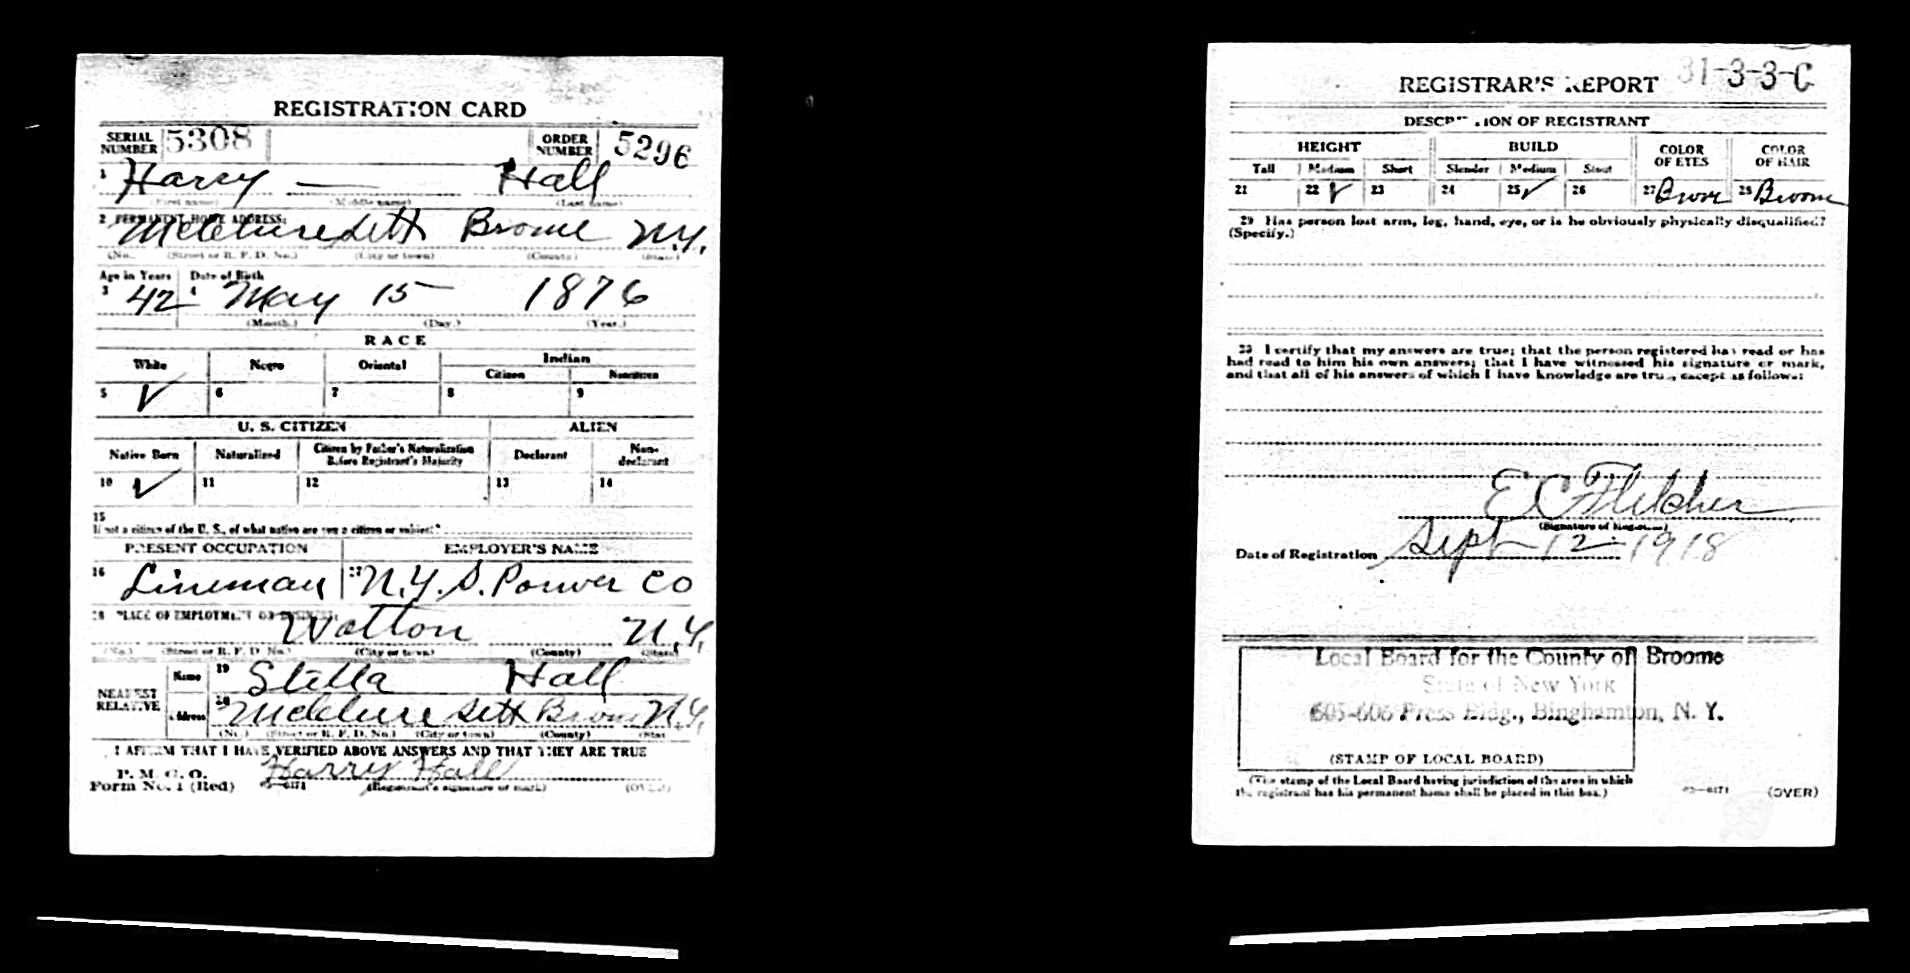 REGISTRATION CARD
SERIAL NUMBER 5308 ORDER NUMBER 5296
1 Harry — Hall
(First name) (Middle name) (Last name)
2 PERMANENT HOME ADDRESS:
McClure Sett Broome N.Y.
(No.) (Street or R. F. D. No.) (City or town) (County) (State)
Age in Years Date of Birth
3 42 4 May 15 1876
(Month.) (Day.) (Year.)
RACE
White Negro Oriental Indian
Citizen Noncitizen
5 ✓ 6 7 8 9
U. S. CITIZEN ALIEN
Native Born Naturalized Citizen by Father's Naturalization Before Registrant's Majority Declarant Non-declarant
10 ✓ 11 12 13 14
15
If not a citizen of the U. S., of what nation are you a citizen or subject?
PRESENT OCCUPATION EMPLOYER'S NAME
16 Lineman 17 N.Y.S. Power Co
18 PLACE OF EMPLOYMENT OR BUSINESS:
Walton N.Y.
(No.) (Street or R. F. D. No.) (City or town) (County) (State)
NEAREST RELATIVE Name 19 Stella Hall
Address 20 McClure Sett Broome N.Y.
(No.) (Street or R. F. D. No.) (City or town) (County) (State)
I AFFIRM THAT I HAVE VERIFIED ABOVE ANSWERS AND THAT THEY ARE TRUE
P. M. G. O.
Form No. 1 (Red) Harry Hall
(Registrant's signature or mark) (OVER)
REGISTRAR'S REPORT 31-3-3-C
DESCRIPTION OF REGISTRANT
HEIGHT BUILD COLOR OF EYES COLOR OF HAIR
Tall Medium Short Slender Medium Stout
21 22 ✓ 23 24 25 ✓ 26 27 Brown 28 Brown
29 Has person lost arm, leg, hand, eye, or is he obviously physically disqualified?
(Specify.)
30 I certify that my answers are true; that the person registered has read or has
had read to him his own answers; that I have witnessed his signature or mark,
and that all of his answers of which I have knowledge are true, except as follows:
E C Fletcher
(Signature of Registrar)
Date of Registration Sept 12 - 1918
Local Board for the County of Broome
State of New York
605-606 Press Bldg., Binghamton, N. Y.
(STAMP OF LOCAL BOARD)
(The stamp of the Local Board having jurisdiction of the area in which
the registrant has his permanent home shall be placed in this box.)
(OVER)